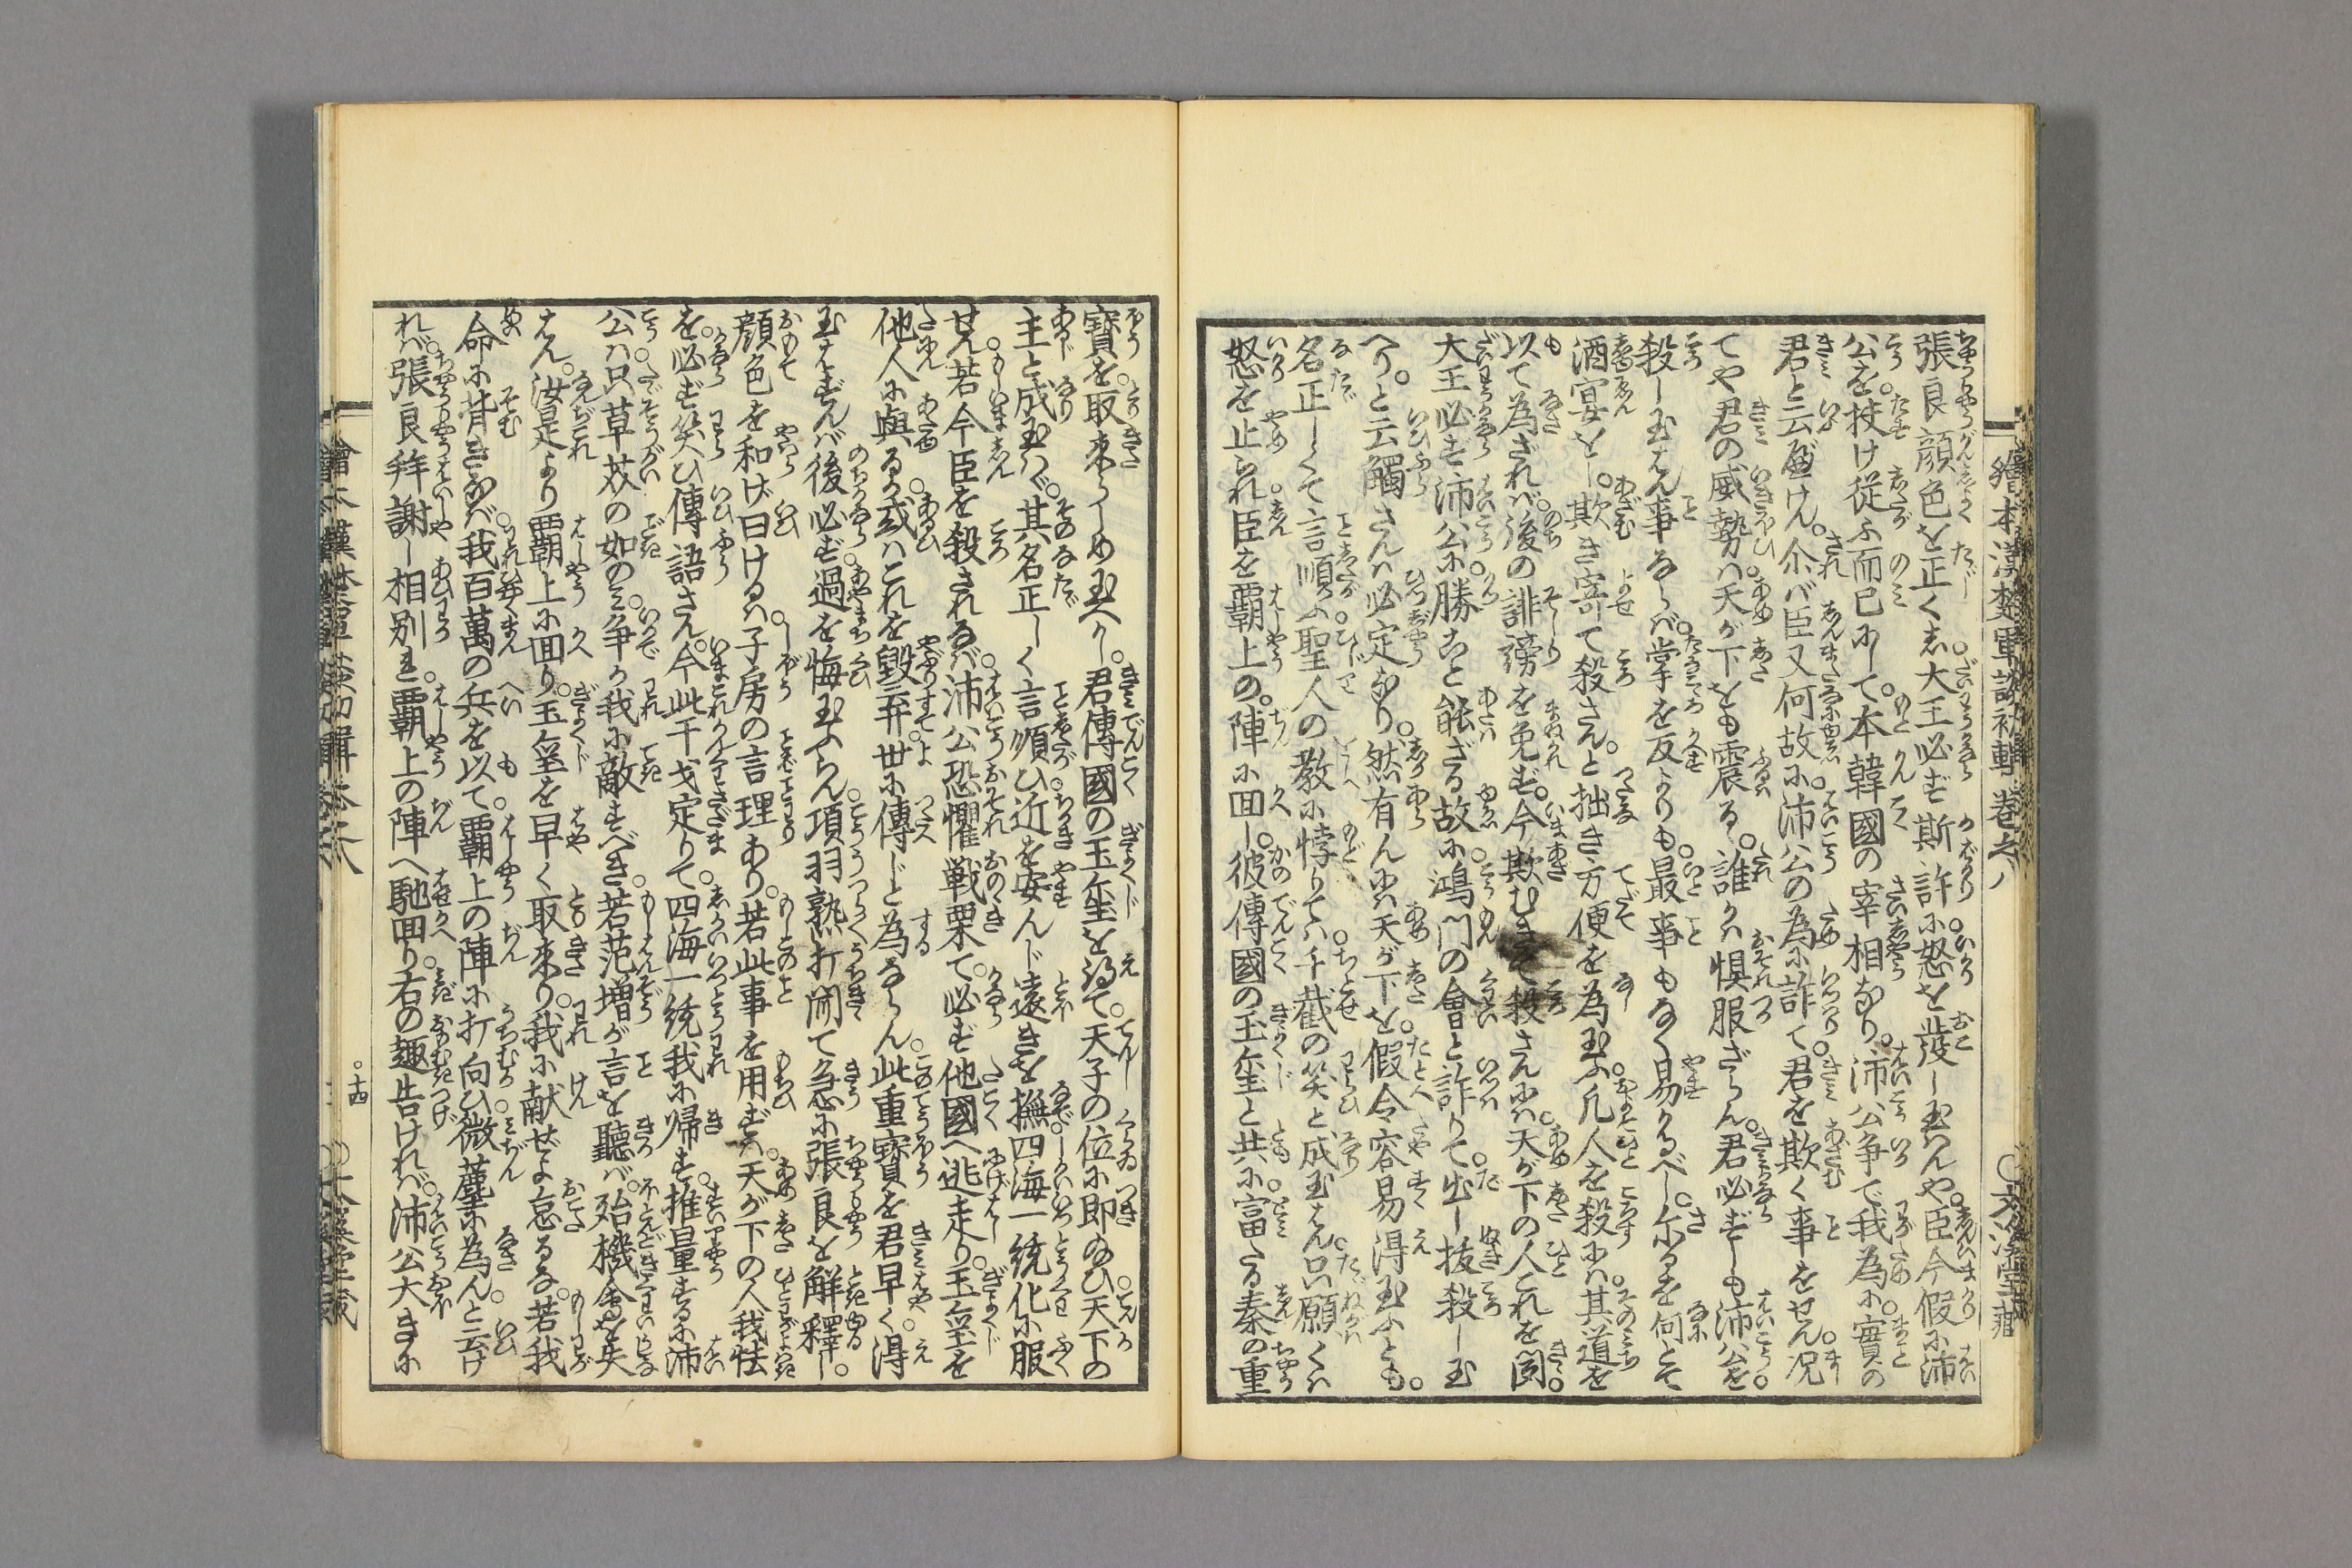 張良顔色を正くし大王必ず斯許に怒を發し玉はんや臣今假に沛
公を扶け従ふ而已にして本韓國の宰相なり沛公争で我為に實の
君と云べけん尒ば臣又何故に沛公の為に詐て君を欺く事をせん况
てや君の威勢は天が下をも震る誰かは惧服ざらん君必ずしも沛公を
殺し玉はん事ならば掌を反よりも最事もなく易かるべし尓るを何とて
酒宴をし欺き寄て殺さんと拙き方便を為玉ふ凡人を殺には其道を
以て為ざれば後の誹謗を免ず今欺むきて殺さんには天が下の人これを聞
大王必ず沛公に勝こと能ざる故に鴻門の會と詐りて出し抜殺し玉
へりと云觸さんは必定なり然有んには天が下を假令容易得玉ふとも
名正しくて言順ふ聖人の教に悖りては千載の笑と成玉はん只願くは
怒を止られ臣を覇上の陣に回し彼傳國の玉璽と共に富たる秦の重
寶を取来らしめ玉へかし君傳國の玉璽を得て天子の位に即給ひ天下の
主と成玉はゞ其名正しく言順ひ近を安んじ遠きを撫四海一統化に服
せん若今臣を殺されなば沛公恐懼戦栗て必ず他國へ逃走り玉璽を
他人に與るか或はこれを毀弃世に傳じと為ならん此重寶を君早く得
玉はずんば後必ず過を悔玉ふらん項羽熟打聞て急に張良を解釋し
顔色を和げ曰けるは子房の言理あり若此事を用ずは天が下の人我怯
を必ず笑ひ傳語さん今此干戈定りて四海一統我に帰す推量するに沛
公は只草芥の如のミ争か我に敵すべき若范増が言を聴ば殆機會を失
はん汝是より覇上に回り玉璽を早く取来り我に献せよ怠るな若我
命に背きなば我百萬の兵を以て覇上の陣に打向ひ微塵に為んと云け
れば張良拜謝し相別れ覇上の陣へ馳回り右の趣告ければ沛公大きに
繪本漢楚軍談初輯 巻之八
十四